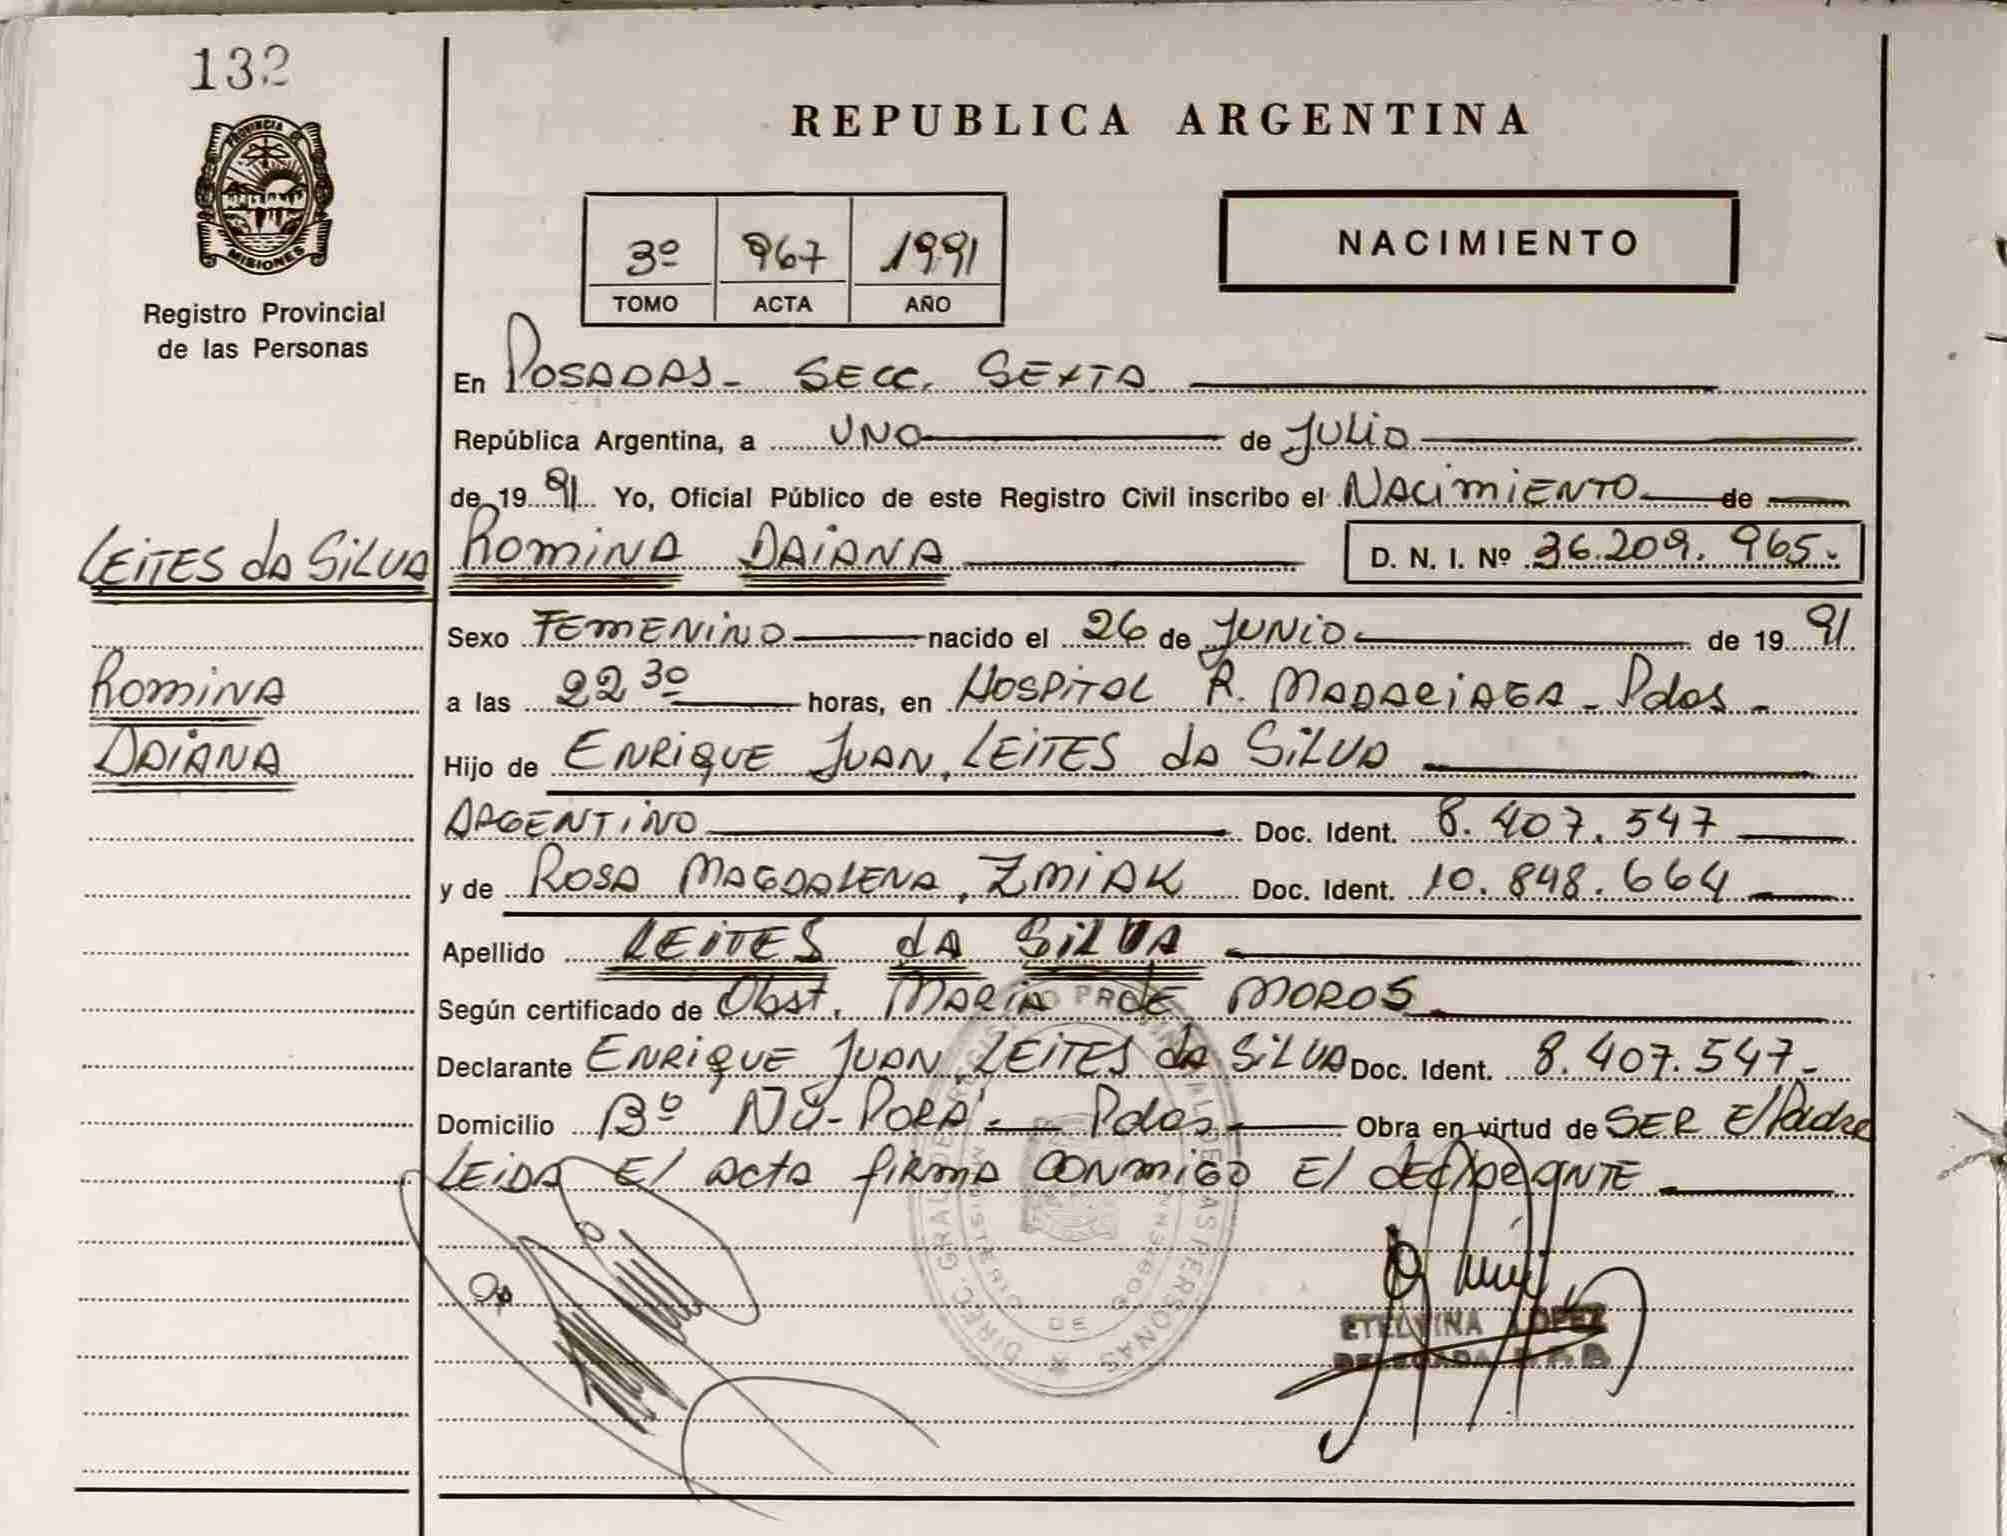 132
PROVINCIA DE
MISIONES
Registro Provincial
de las Personas
LEITES da SILVA
ROMINA
DAIANA
REPUBLICA ARGENTINA
3º 967 1991
TOMO ACTA AÑO
NACIMIENTO
En POSADAS- SECC. SEXTA
República Argentina, a UNO de JULIO
de 1991 Yo, Oficial Público de este Registro Civil inscribo el NACIMIENTO de
ROMINA DAIANA D. N. I. Nº 36.209.965.-
Sexo FEMENINO nacido el 26 de JUNIO de 1991
a las 22 30 horas, en HOSPITAL R. MADARIAGA - Pdas -
Hijo de ENRIQUE JUAN, LEITES da SILVA
ARGENTINO Doc. Ident. 8.407.547
y de ROSA MAGDALENA, ZMIAK Doc. Ident. 10.848.664
Apellido LEITES dA SILVA
Según certificado de Obst. MARIA de MOROS
Declarante ENRIQUE JUAN, LEITES da SILVA Doc. Ident. 8.407.547.-
Domicilio Bº ÑU-PORA' - Pdas Obra en virtud de SER El Padre
LEIDA El acta firma conmigo El declarante
ETELVINA LOPEZ
DELEGADA